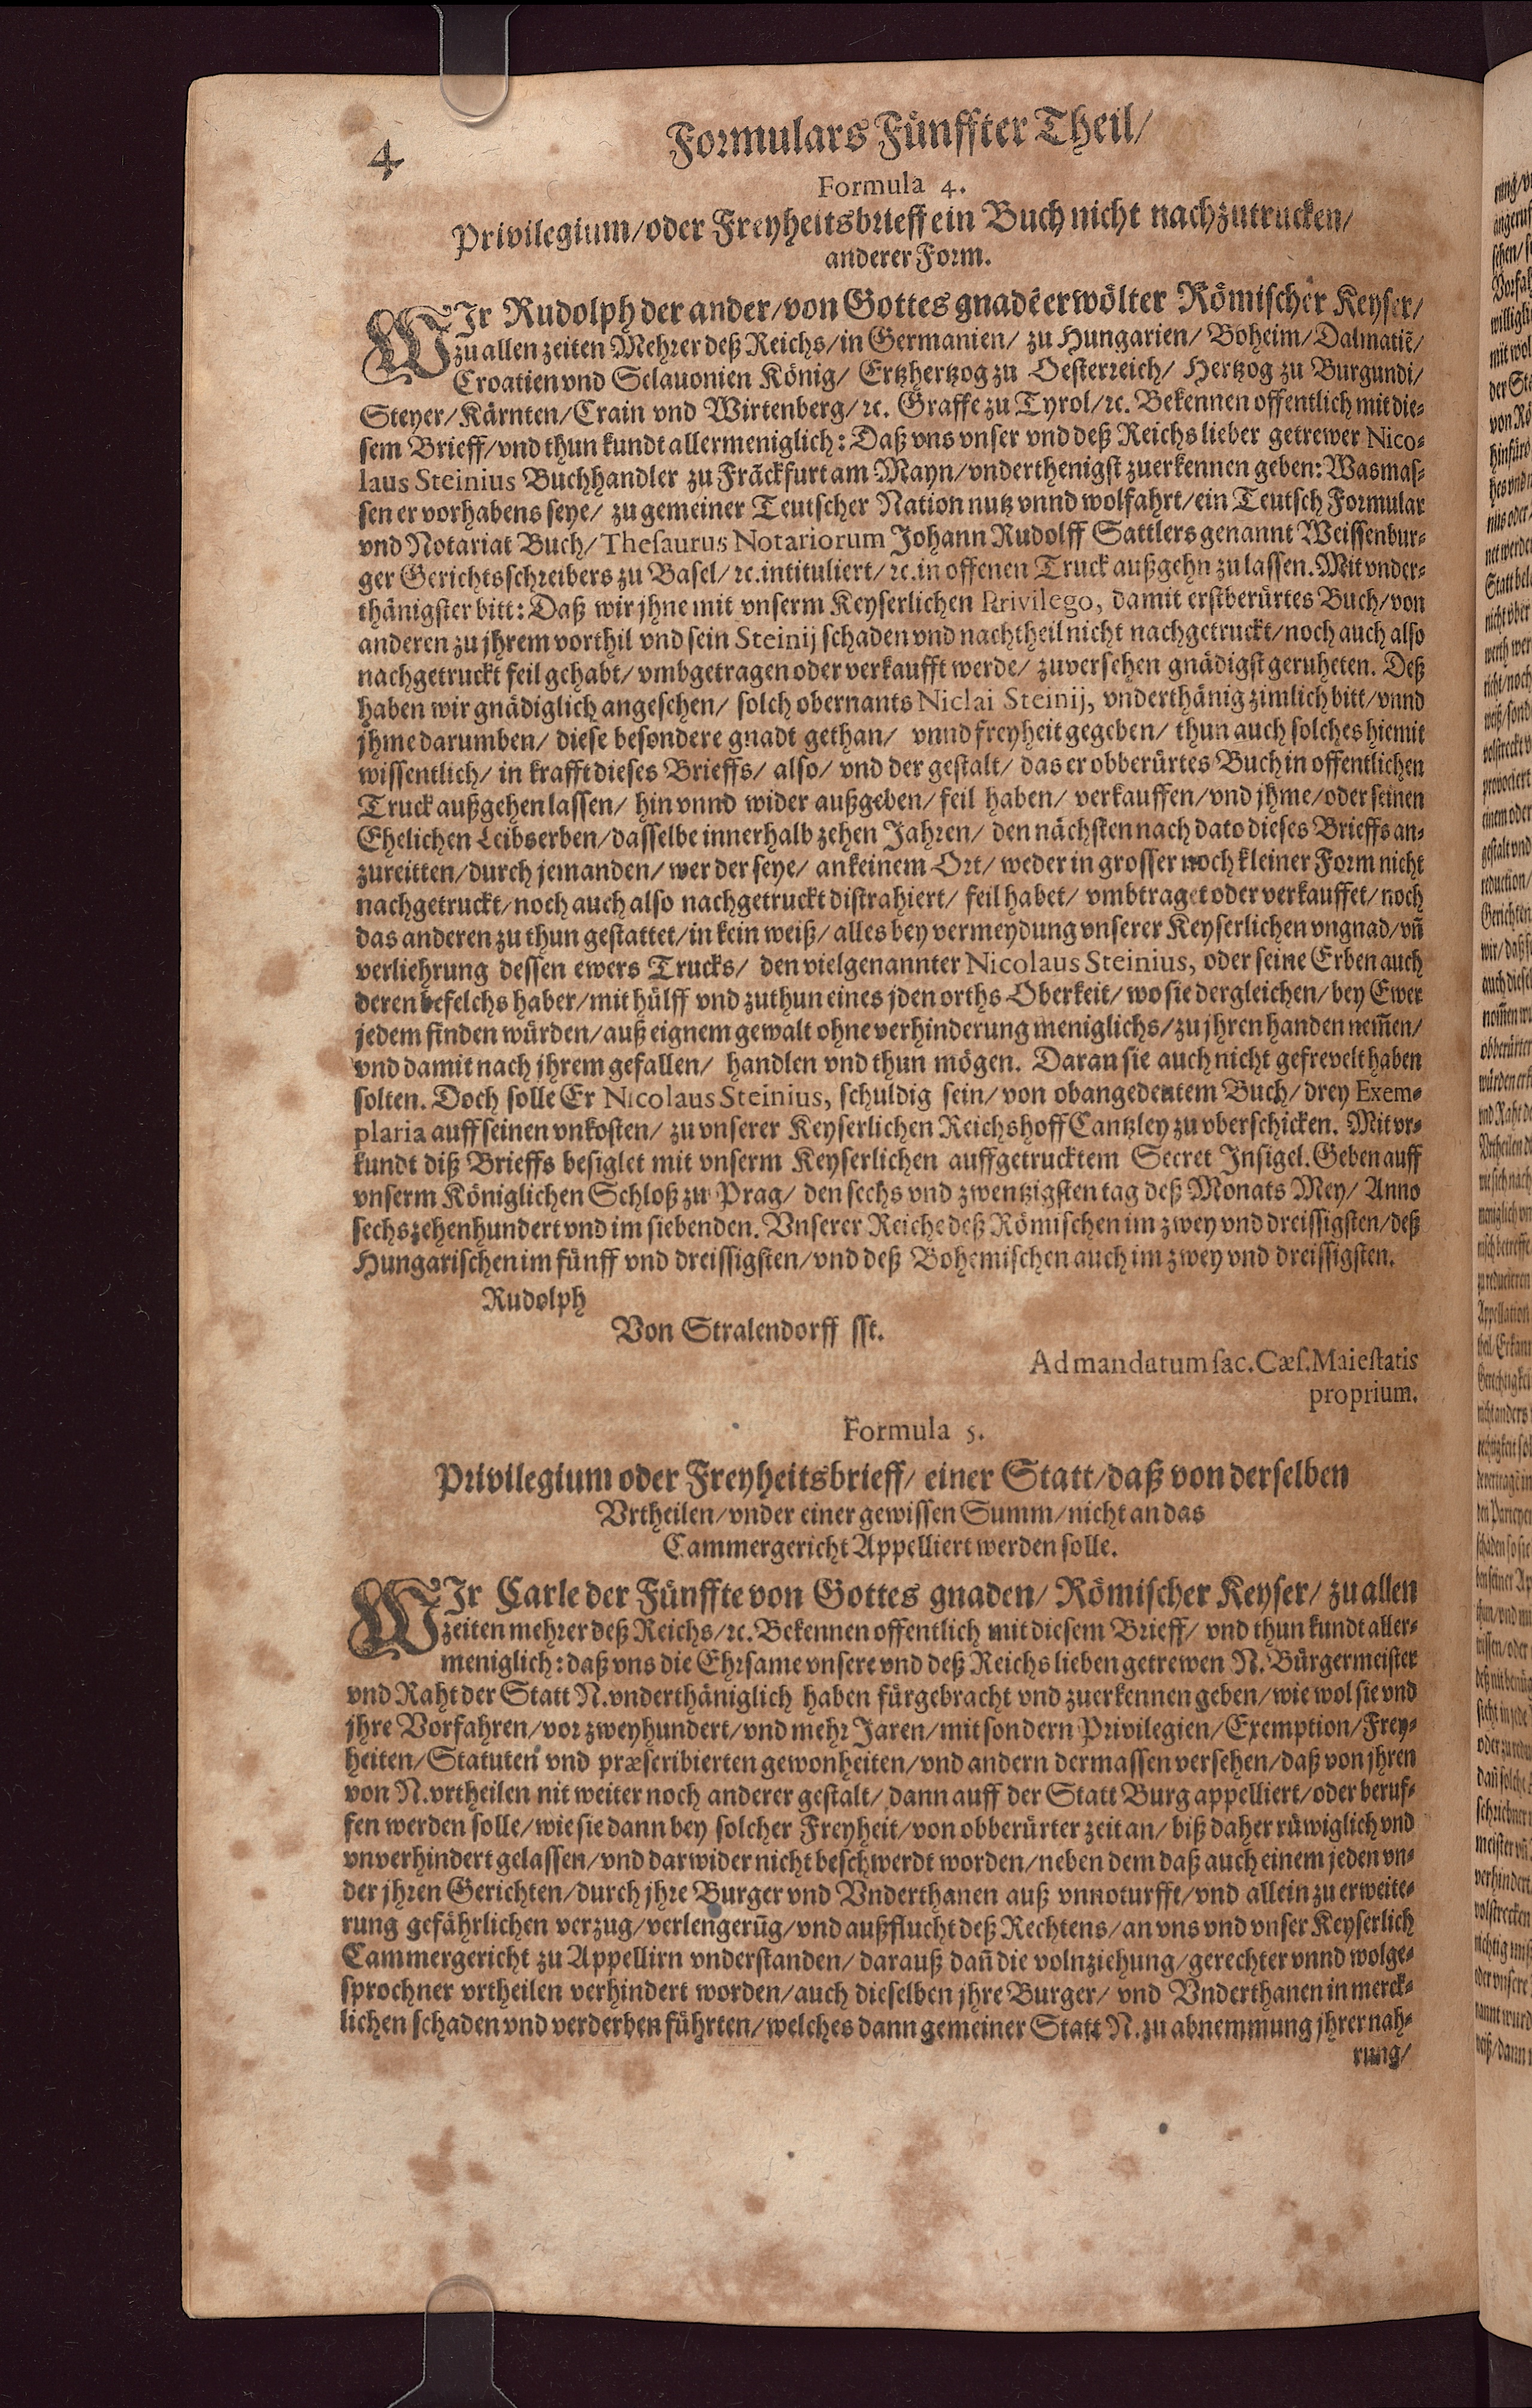 4
Formulars Fünffter Theil/
Formula 4.
Privilegium/oder Freyheitsbrieff ein Buch nicht nachzutrucken/
anderer Form.
WIr Rudolph der ander/von Gottes gnadē erwölter Römischer Keyser/
zu allen zeiten Mehrer deß Reichs/in Germanien/ zu Hungarien/ Boheim/Dalmatiē/
Croatien vnd Sclauonien König/ Ertzhertzog zu Oesterreich/ Hertzog zu Burgundi/
Steyer/Kärnten/Crain vnd Wirtenberg/ꝛc. Graffe zu Tyrol/ꝛc. Bekennen offentlich mit die-
sem Brieff/vnd thun kundt allermeniglich: Daß vns vnser vnd deß Reichs lieber getrewer Nico-
laus Steinius Buchhandler zu Frāckfurt am Mayn/vnderthenigst zuerkennen geben: Was mas-
sen er vorhabens seye/ zu gemeiner Teutscher Nation nutz vnnd wolfahrt/ein Teutsch Formular
vnd Notariat Buch/Thesaurus Notariorum Johann Rudolff Sattlers genannt Weissenbur-
ger Gerichtsschreibers zu Basel/ꝛc.intituliert/ꝛc.in offenen Truck außgehn zu lassen. Mit vnder-
thänigster bitt: Daß wir jhne mit vnserm Keyserlichen Privilego, damit erstberürtes Buch/von
anderen zu jhrem vorthil vnd sein Steinij schaden vnd nachtheil nicht nachgetruckt/noch auch also
nachgetruckt feil gehabt/vmbgetragen oder verkaufft werde/ zuversehen gnädigst geruheten. Deß
haben wir gnädiglich angesehen/ solch obernants Niclai Steinij, vnderthänig zimlich bitt/vnnd
jhme darumben/ diese besondere gnadt gethan/ vnnd freyheit gegeben/ thun auch solches hiemit
wissentlich/ in krafft dieses Brieffs/ also/ vnd der gestalt/ das er obberürtes Buch in offentlichen
Truck außgehen lassen/ hin vnnd wider außgeben/feil haben/ verkauffen/vnd jhme/oder seinen
Ehelichen Leibserben/dasselbe innerhalb zehen Jahren/ den nächsten nach dato dieses Brieffs an-
zureitten/durch jemanden/wer der seye/ an keinem Ort/ weder in grosser noch kleiner Form nicht
nachgetruckt/noch auch also nachgetruckt distrahiert/ feil habet/ vmbtraget oder verkauffet/noch
das anderen zu thun gestattet/in kein weiß/alles bey vermeydung vnserer Keyserlichen vngnad/vn̄
verliehrung dessen ewers Trucks/ den vielgenannter Nicolaus Steinius, oder seine Erben auch
deren befelchs haber/mit hülff vnd zuthun eines jden orths Oberkeit/wo sie dergleichen/bey Ewer
jedem finden würden/auß eignem gewalt ohne verhinderung meniglichs/zu jhren handen nem̄en/
vnd damit nach jhrem gefallen/ handlen vnd thun mögen. Daran sie auch nicht gefrevelt haben
solten. Doch solle Er Nicolaus Steinius, schuldig sein/von obangedentem Buch/drey Exem-
plaria auff seinen vnkosten/ zu vnserer Keyserlichen Reichshoff Cantzley zu vberschicken. Mit vr-
kundt diß Brieffs besiglet mit vnserm Keyserlichen auffgetrucktem Secret Insigel. Geben auff
vnserm Königlichen Schloß zu Prag/ den sechs vnd zwentzigsten tag deß Monats Mey/ Anno
sechszehenhundert vnd im siebenden. Vnserer Reiche deß Römischen im zwey vnd dreissigsten/deß
Hungarischen im fünff vnd dreissigsten/vnd deß Bohemischen auch im zwey vnd dreissigsten.
Rudolph
Von Stralendorff sst.
Ad mandatum sac. Cæs. Maiestatis
proprium.
Formula 5.
Privilegium oder Freyheitsbrieff/ einer Statt/daß von derselben
Vrtheilen/vnder einer gewissen Summ/nicht an das
Cammergericht Appelliert werden solle.
WIr Carle der Fünffte von Gottes gnaden/ Römischer Keyser/ zu allen
zeiten mehrer deß Reichs/ꝛc. Bekennen offentlich mit diesem Brieff/ vnd thun kundt aller-
meniglich: daß vns die Ehrsame vnsere vnd deß Reichs lieben getrewen N. Bürgermeister
vnd Raht der Statt N. vnderthäniglich haben fürgebracht vnd zuerkennen geben/wie wol sie vnd
jhre Vorfahren/vor zweyhundert/vnd mehr Jaren/mit sondern Privilegien/Exemption/Frey-
heiten/Statuten vnd præscribierten gewonheiten/vnd andern dermassen versehen/daß von jhren
von N. vrtheilen nit weiter noch anderer gestalt/dann auff der Statt Burg appelliert/oder beruf-
fen werden solle/wie sie dann bey solcher Freyheit/von obberürter zeit an/ biß daher rüwiglich vnd
vnverhindert gelassen/vnd darwider nicht beschwerdt worden/neben dem daß auch einem jeden vn-
der jhren Gerichten/durch jhre Burger vnd Vnderthanen auß vnnoturfft/vnd allein zu erweite-
rung gefährlichen verzug/verlengerūg/vnd außflucht deß Rechtens/an vns vnd vnser Keyserlich
Cammergericht zu Appellirn vnderstanden/darauß dan̄ die volnziehung/gerechter vnnd wolge-
sprochner vrtheilen verhindert worden/auch dieselben jhre Burger/ vnd Vnderthanen in merck-
lichen schaden vnd verderben führten/welches dann gemeiner Statt N. zu abnemmung jhrer nah-
rung/